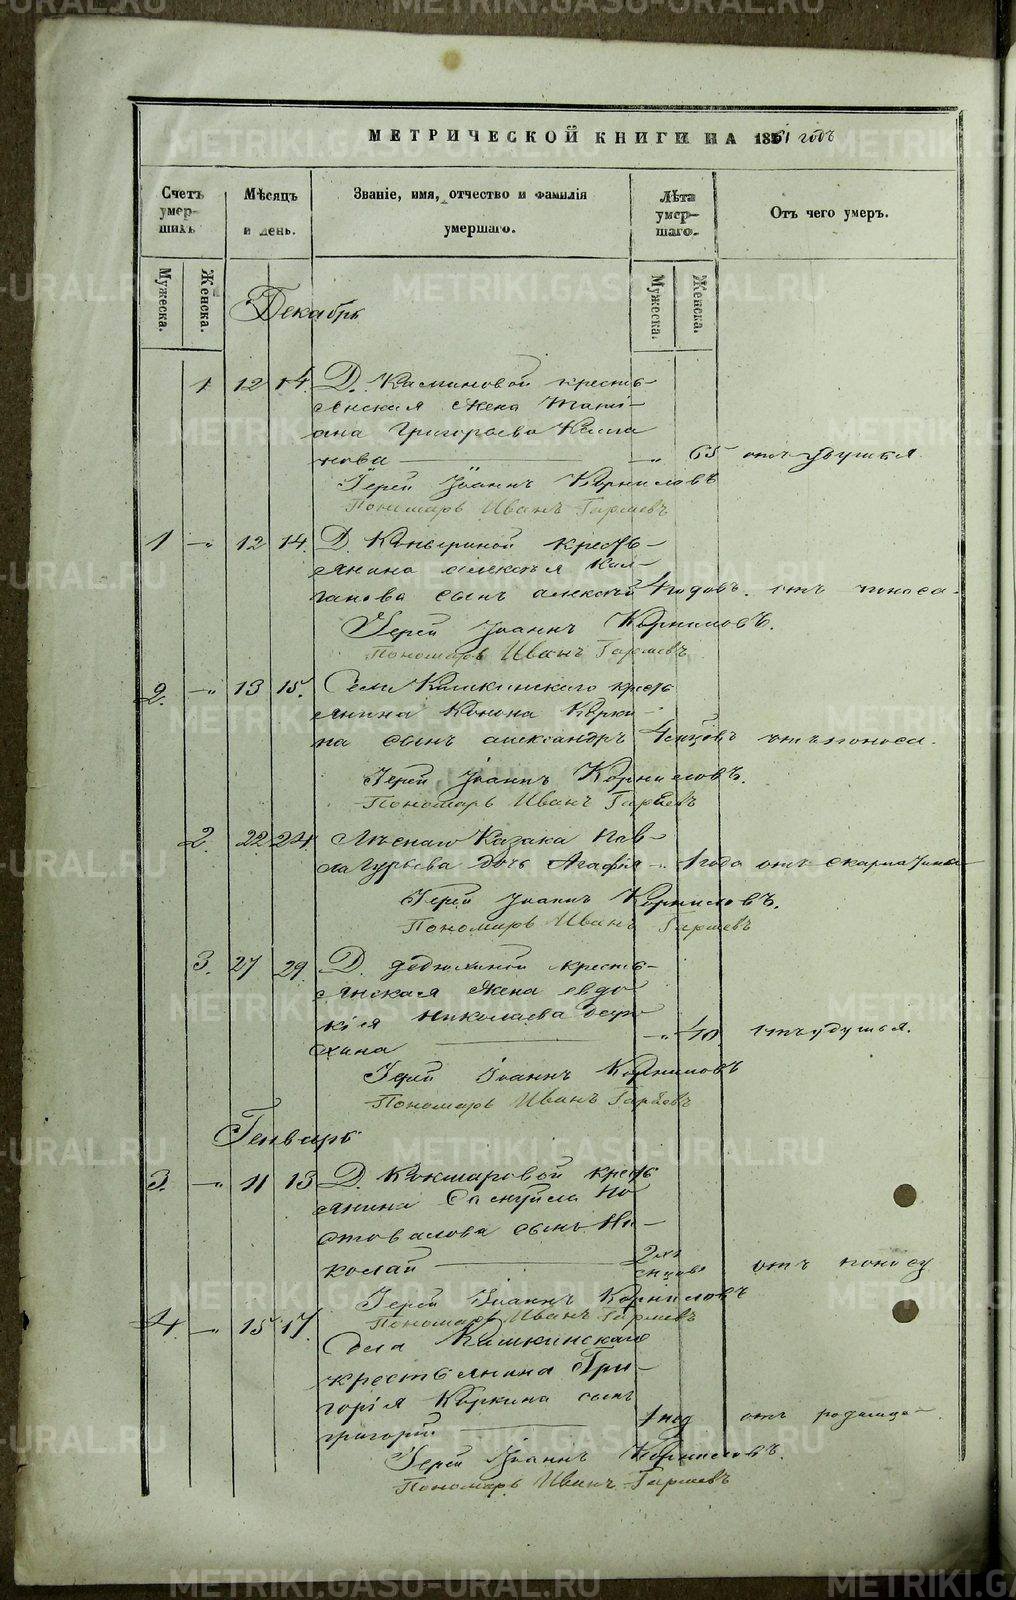 МЕТРИЧЕСКОЙ КНИГИ НА 1861 годъ
Счетъ умер- шихъ
Мѣсяцъ и день.
Званіе, имя, отчество и фамилія умершаго.
Лѣта умер- шаго.
Отъ чего умеръ.
Мужеска. Женска. Мужеска. Женска.
Декабрь
1 12 14 Д. Калмановой кресть-
янская жена Тати-
ана Григорьева Калма
нова 65 отъ удушья
Іерей Іоаннъ Корниловъ
Пономарь Иванъ Гаряевъ
1 12 14 Д. кресть-
янина алексѣя
сынъ алексѣй 4 годовъ. отъ поноса.
Іерей Іоаннъ Корниловъ.
Пономарь Иванъ Гаряевъ
2. 13 15. Села кресть
янина Конона Корки
на сынъ александръ 4 отъ поноса.
Іерей Іоаннъ Корниловъ.
Пономарь Иванъ Гаряевъ
2. 22 24. Казака Пав-
ла Гурьева дочь Агафія 1 года отъ скарлатина
Іерей Іоаннъ Корниловъ.
Пономарь Иванъ Гаряевъ
3. 27 29. Д. кресть-
янская жена евдо
кія Николаева
40 отъ удушья.
Іерей Іоаннъ Корниловъ
Пономарь Иванъ Гаряевъ
Генварь
3. 11 13 Д. Кокшаровой кресть
янина Самуила По
отовалова сынъ Ни-
колай 2хъ отъ поносу
Іерей Іоаннъ Корниловъ
Пономарь Иванъ Гаряевъ
4. 15 17. Села
крестьянина Гри-
горія Коркина сынъ
григорій 1 год отъ родимца.
Іерей Іоаннъ Корниловъ.
Пономарь Иванъ Гаряевъ
METRIKI.GASO-URAL.RU